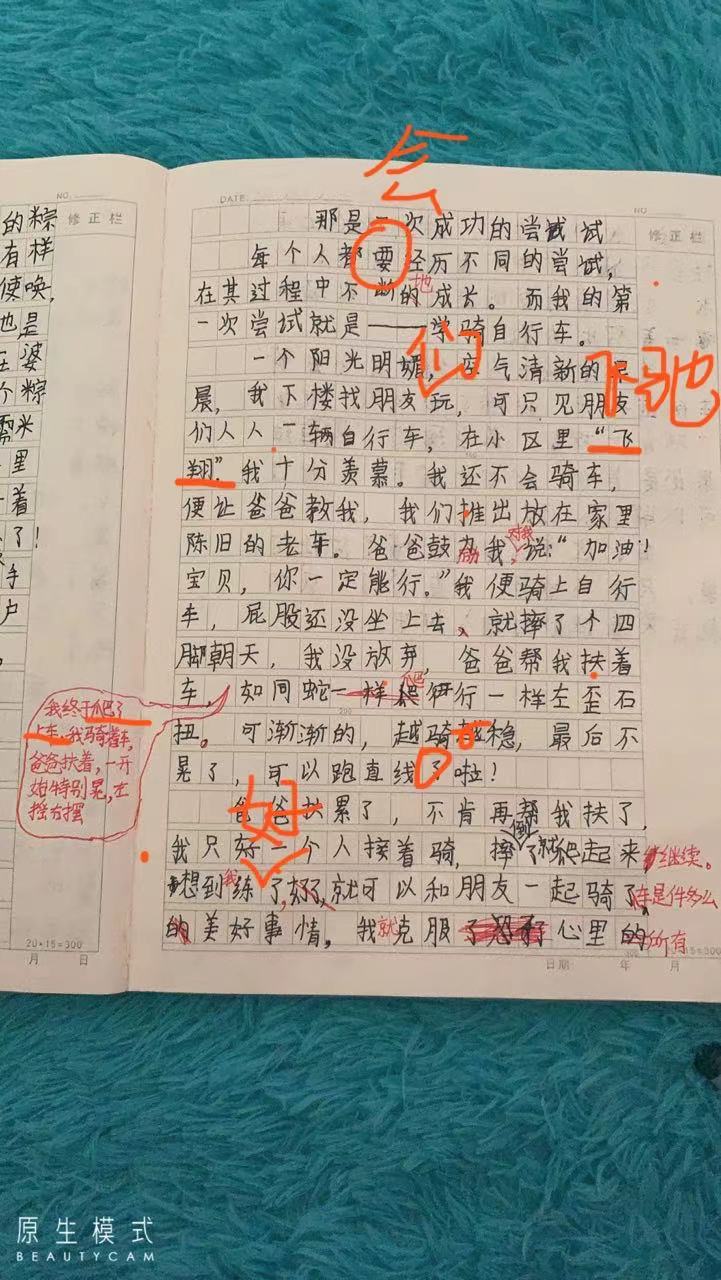 会
的粽
有样
使唤,
也是
在婆
个粽
糯米
里
着
了!
手
户
NO.
修正栏
DATE
NO
修正栏
那是一次成功的尝试试
每个人都要经历不同的尝试,
在其过程中不断的地成长。而我的第
一次尝试就是——学骑自行车。
们
飞驰
一个阳光明媚,空气清新的早
晨,我下楼找朋友玩,可只见朋友
们人人一辆自行车,在小区里“飞
翔”我十分羡慕。我还不会骑车,
便让爸爸教我,我们推出放在家里
陈旧的老车。爸爸鼓励我对我说:“加油!
宝贝,你一定能行。”我便骑上自行
车,屁股还没坐上去、就摔了个四
脚朝天,我没放弃,爸爸帮我扶着
车,如同蛇一样爬行一样左歪右
扭。可渐渐的,越骑越稳,最后不
晃了,可以跑直线了啦!
我终于爬了
上车,我骑着车,
爸爸扶着,一开
始特别晃,左
摇右摆
爸爸扶累了,不肯再帮我扶了,
我只好一个人接着骑,摔倒了就爬起来继续。
想到我练好了,就可以和朋友一起骑了车是件多么
的美好事情,我就克服了心里的所有
20×15=300
月 日
日期 年 月
15=300
原生模式
BEAUTYCAM